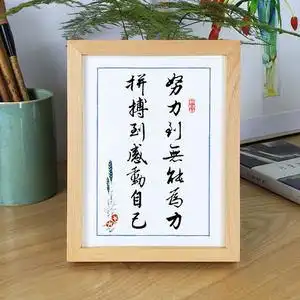 努力到無能為力
拼搏到感動自己